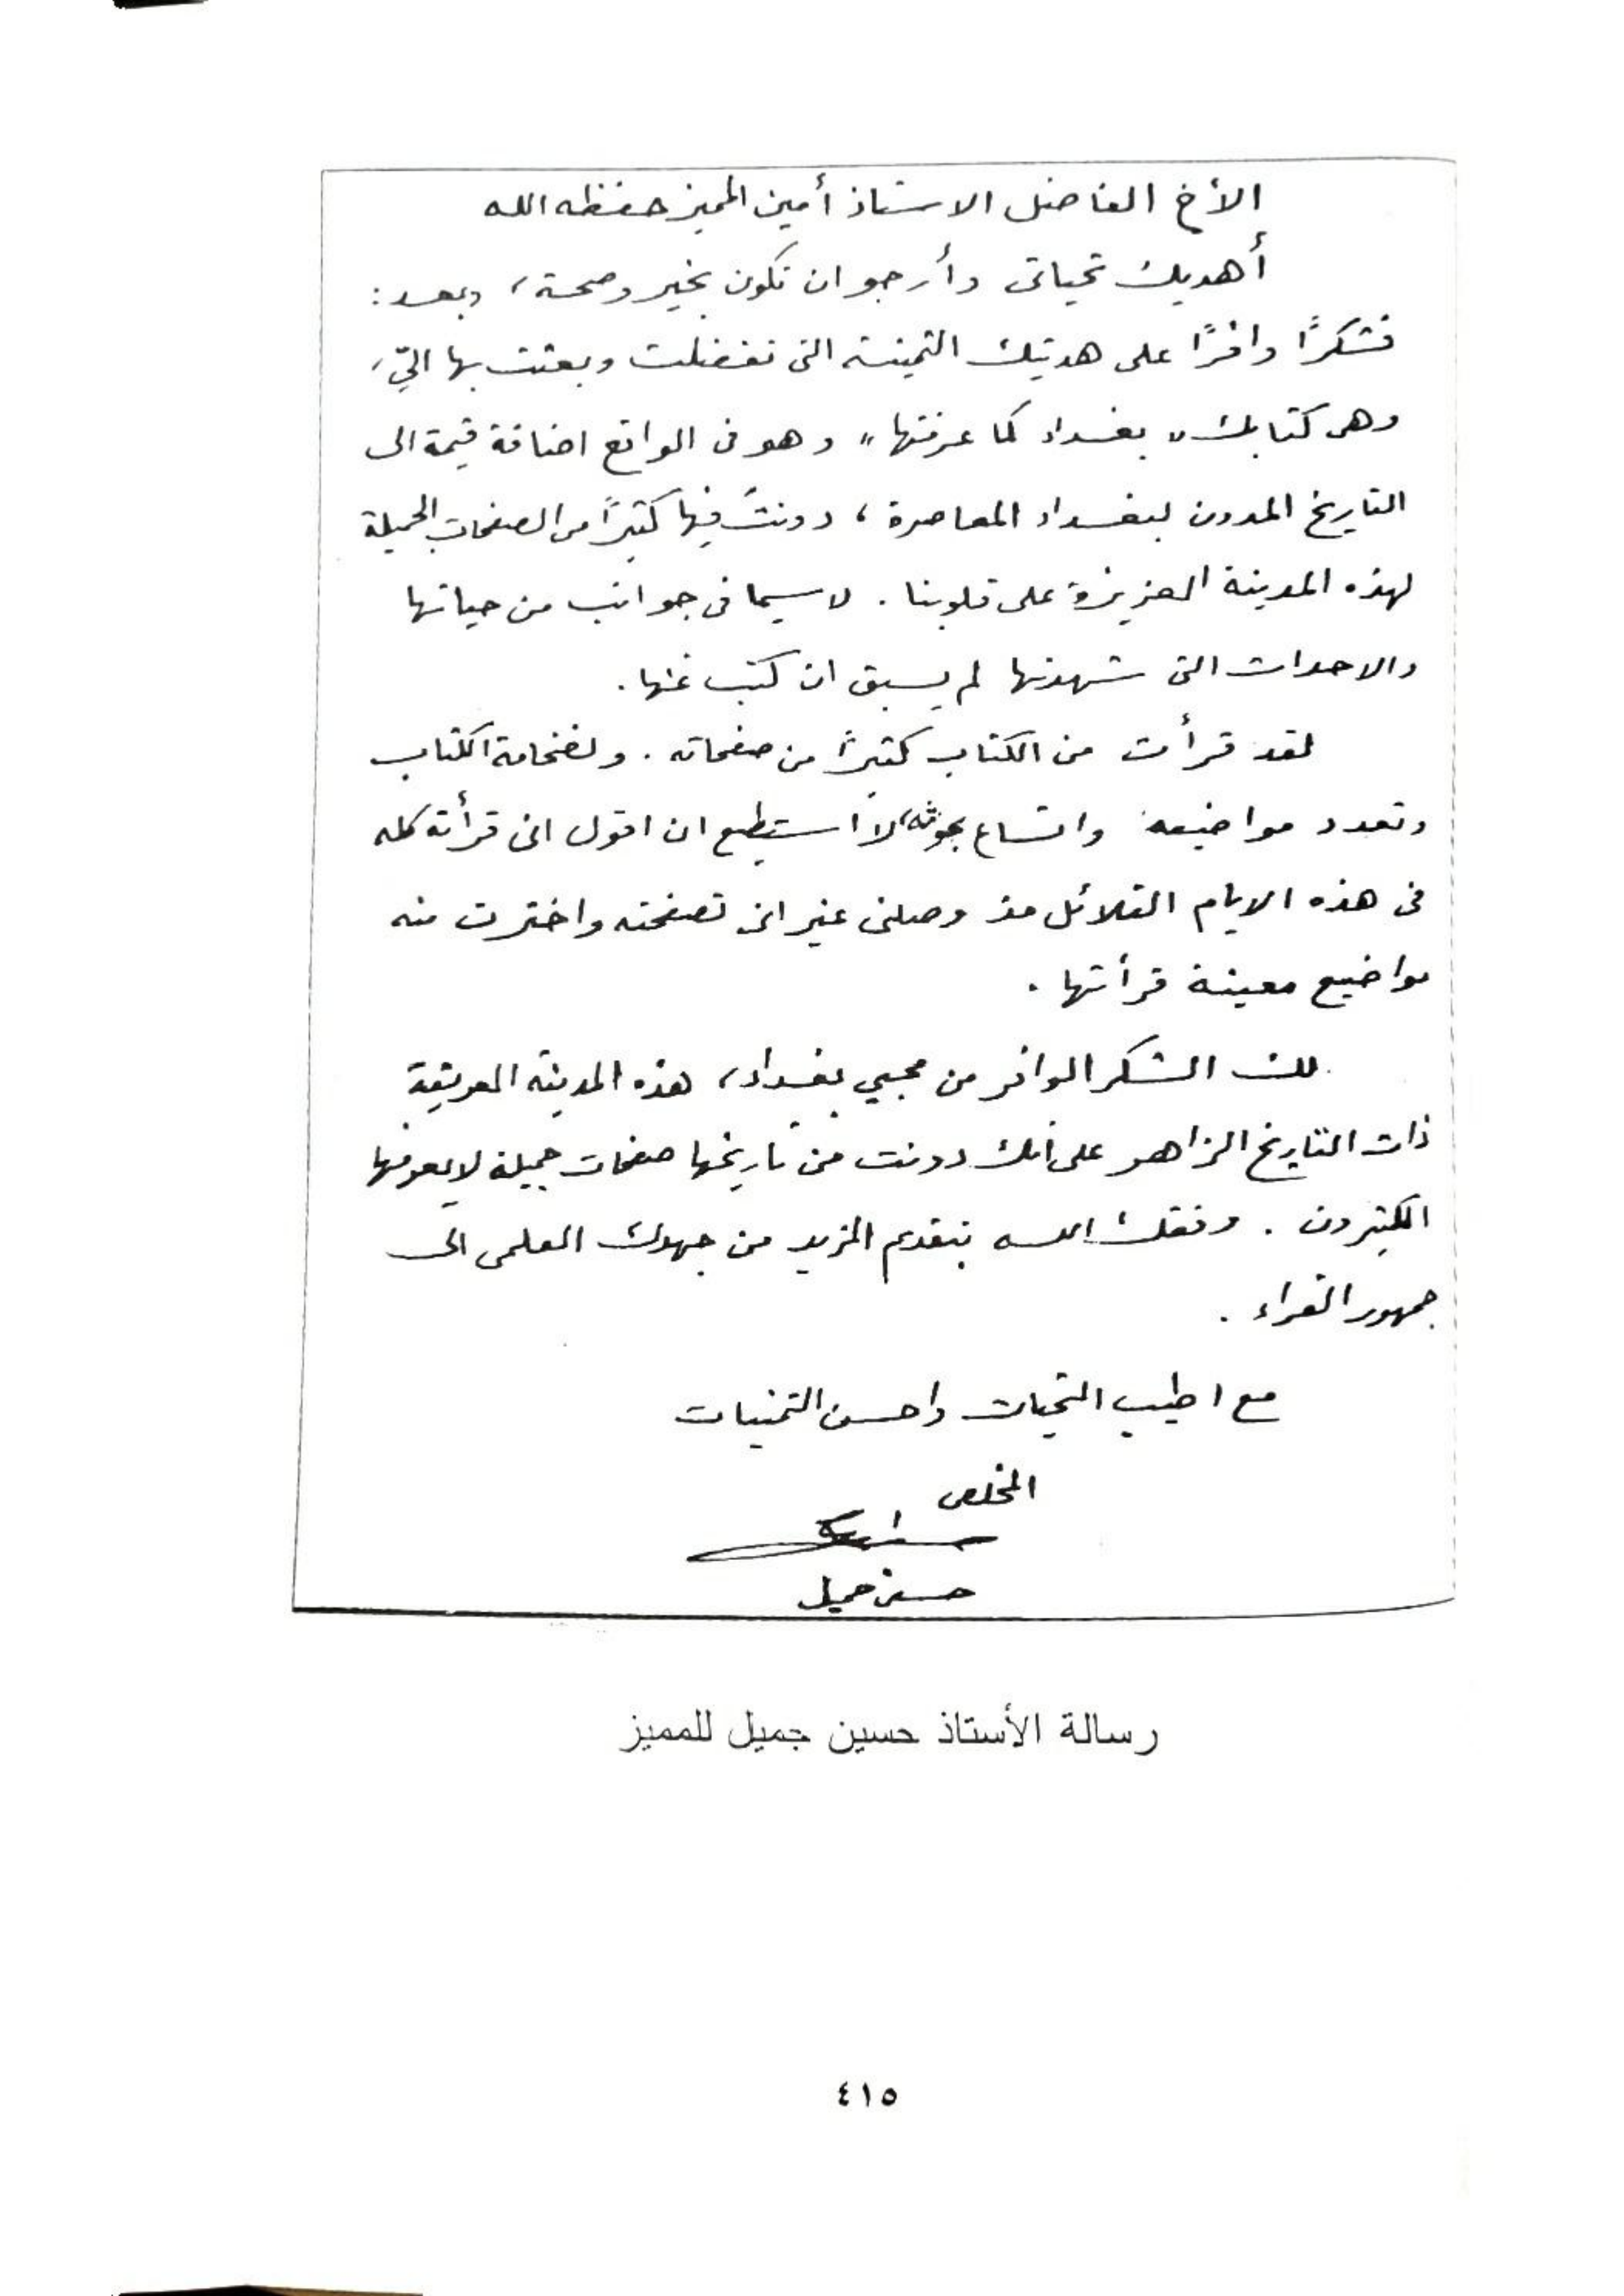 الأخ الفاضل الاستاذ أمين المميز حفظه الله
أهديك تحياتي وأرجو ان تكون بخير وصحة، وبعد:
فشكرًا وافرًا على هديتك الثمينة التي تفضلت وبعثت بها اليّ،
وهي كتابك " بغداد كما عرفتها " وهو في الواقع اضافة قيمة الى
التاريخ المدون لبغداد المعاصرة، دونت فيها كثيرًا من الصفحات الجميلة
لهذه المدينة العزيزة على قلوبنا. لا سيما في جوانب من حياتها
والاحداث التي شهدتها لم يسبق ان كتب عنها.
لقد قرأت من الكتاب كثيرًا من صفحاته. ولضخامة الكتاب
وتعدد مواضيعه واتساع بحوثه، لا استطيع ان اقول اني قرأته كله
في هذه الايام القلائل منذ وصلني غير اني تصفحته واخترت منه
مواضيع معينة قرأتها.
لك الشكر الوافر من محبي بغداد، هذه المدينة العريقة
ذات التاريخ الزاهر على انك دونت من تاريخها صفحات جميلة لا يعرفها
الكثيرون. وفقك الله بتقديم المزيد من جهدك العلمي الى
جمهور القراء.
مع اطيب التحيات واحسن التمنيات
المخلص
حسين جميل
رسالة الأستاذ حسين جميل للمميز
٤١٥